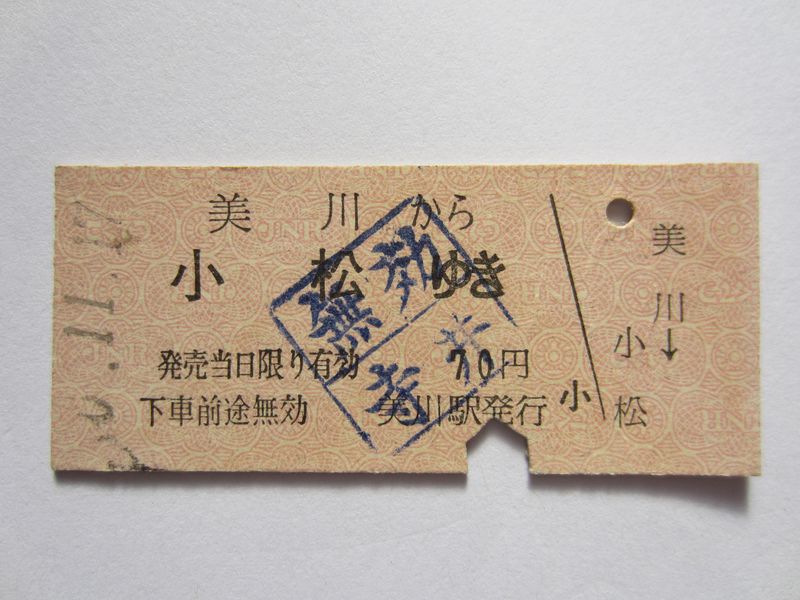 美川から
小松ゆき
発売当日限り有効 70円
下車前途無効 美川駅発行
小
美川→
小松
無効
11.17
JNR